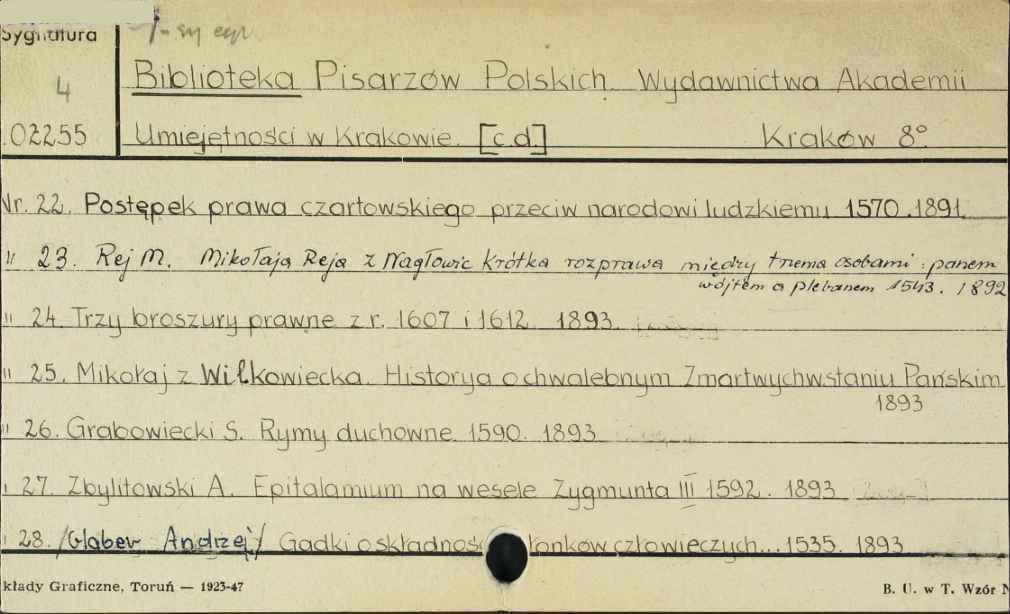 Sygnatura
4
Biblioteka Pisarzów Polskich. Wydawnictwa Akademii
.02255 Umiejętności w Krakowie. [c.d.] Kraków 8°
Nr. 22. Postępek prawa czartowskiego przeciw narodowi ludzkiemu 1570. 1891
" 23. Rej M. Mikołaja Reja z Nagłowic Krótka rozprawa między trzema osobami: panem
wójtem a plebanem 1543. 1892
" 24. Trzy broszury prawne z r. 1607 i 1612. 1893.
" 25. Mikołaj z Wilkowiecka. Historya o chwalebnym Zmartwychwstaniu Pańskim
1893
" 26. Grabowiecki S. Rymy duchowne. 1590. 1893
" 27. Zbylitowski A. Epitalamium na wesele Zygmunta III 1592. 1893
28. /Glaber Andrzej/ Gadki o składnoś łonków człowieczych... 1535. 1893
kłady Graficzne, Toruń — 1923-47
B. U. w T. Wzór N